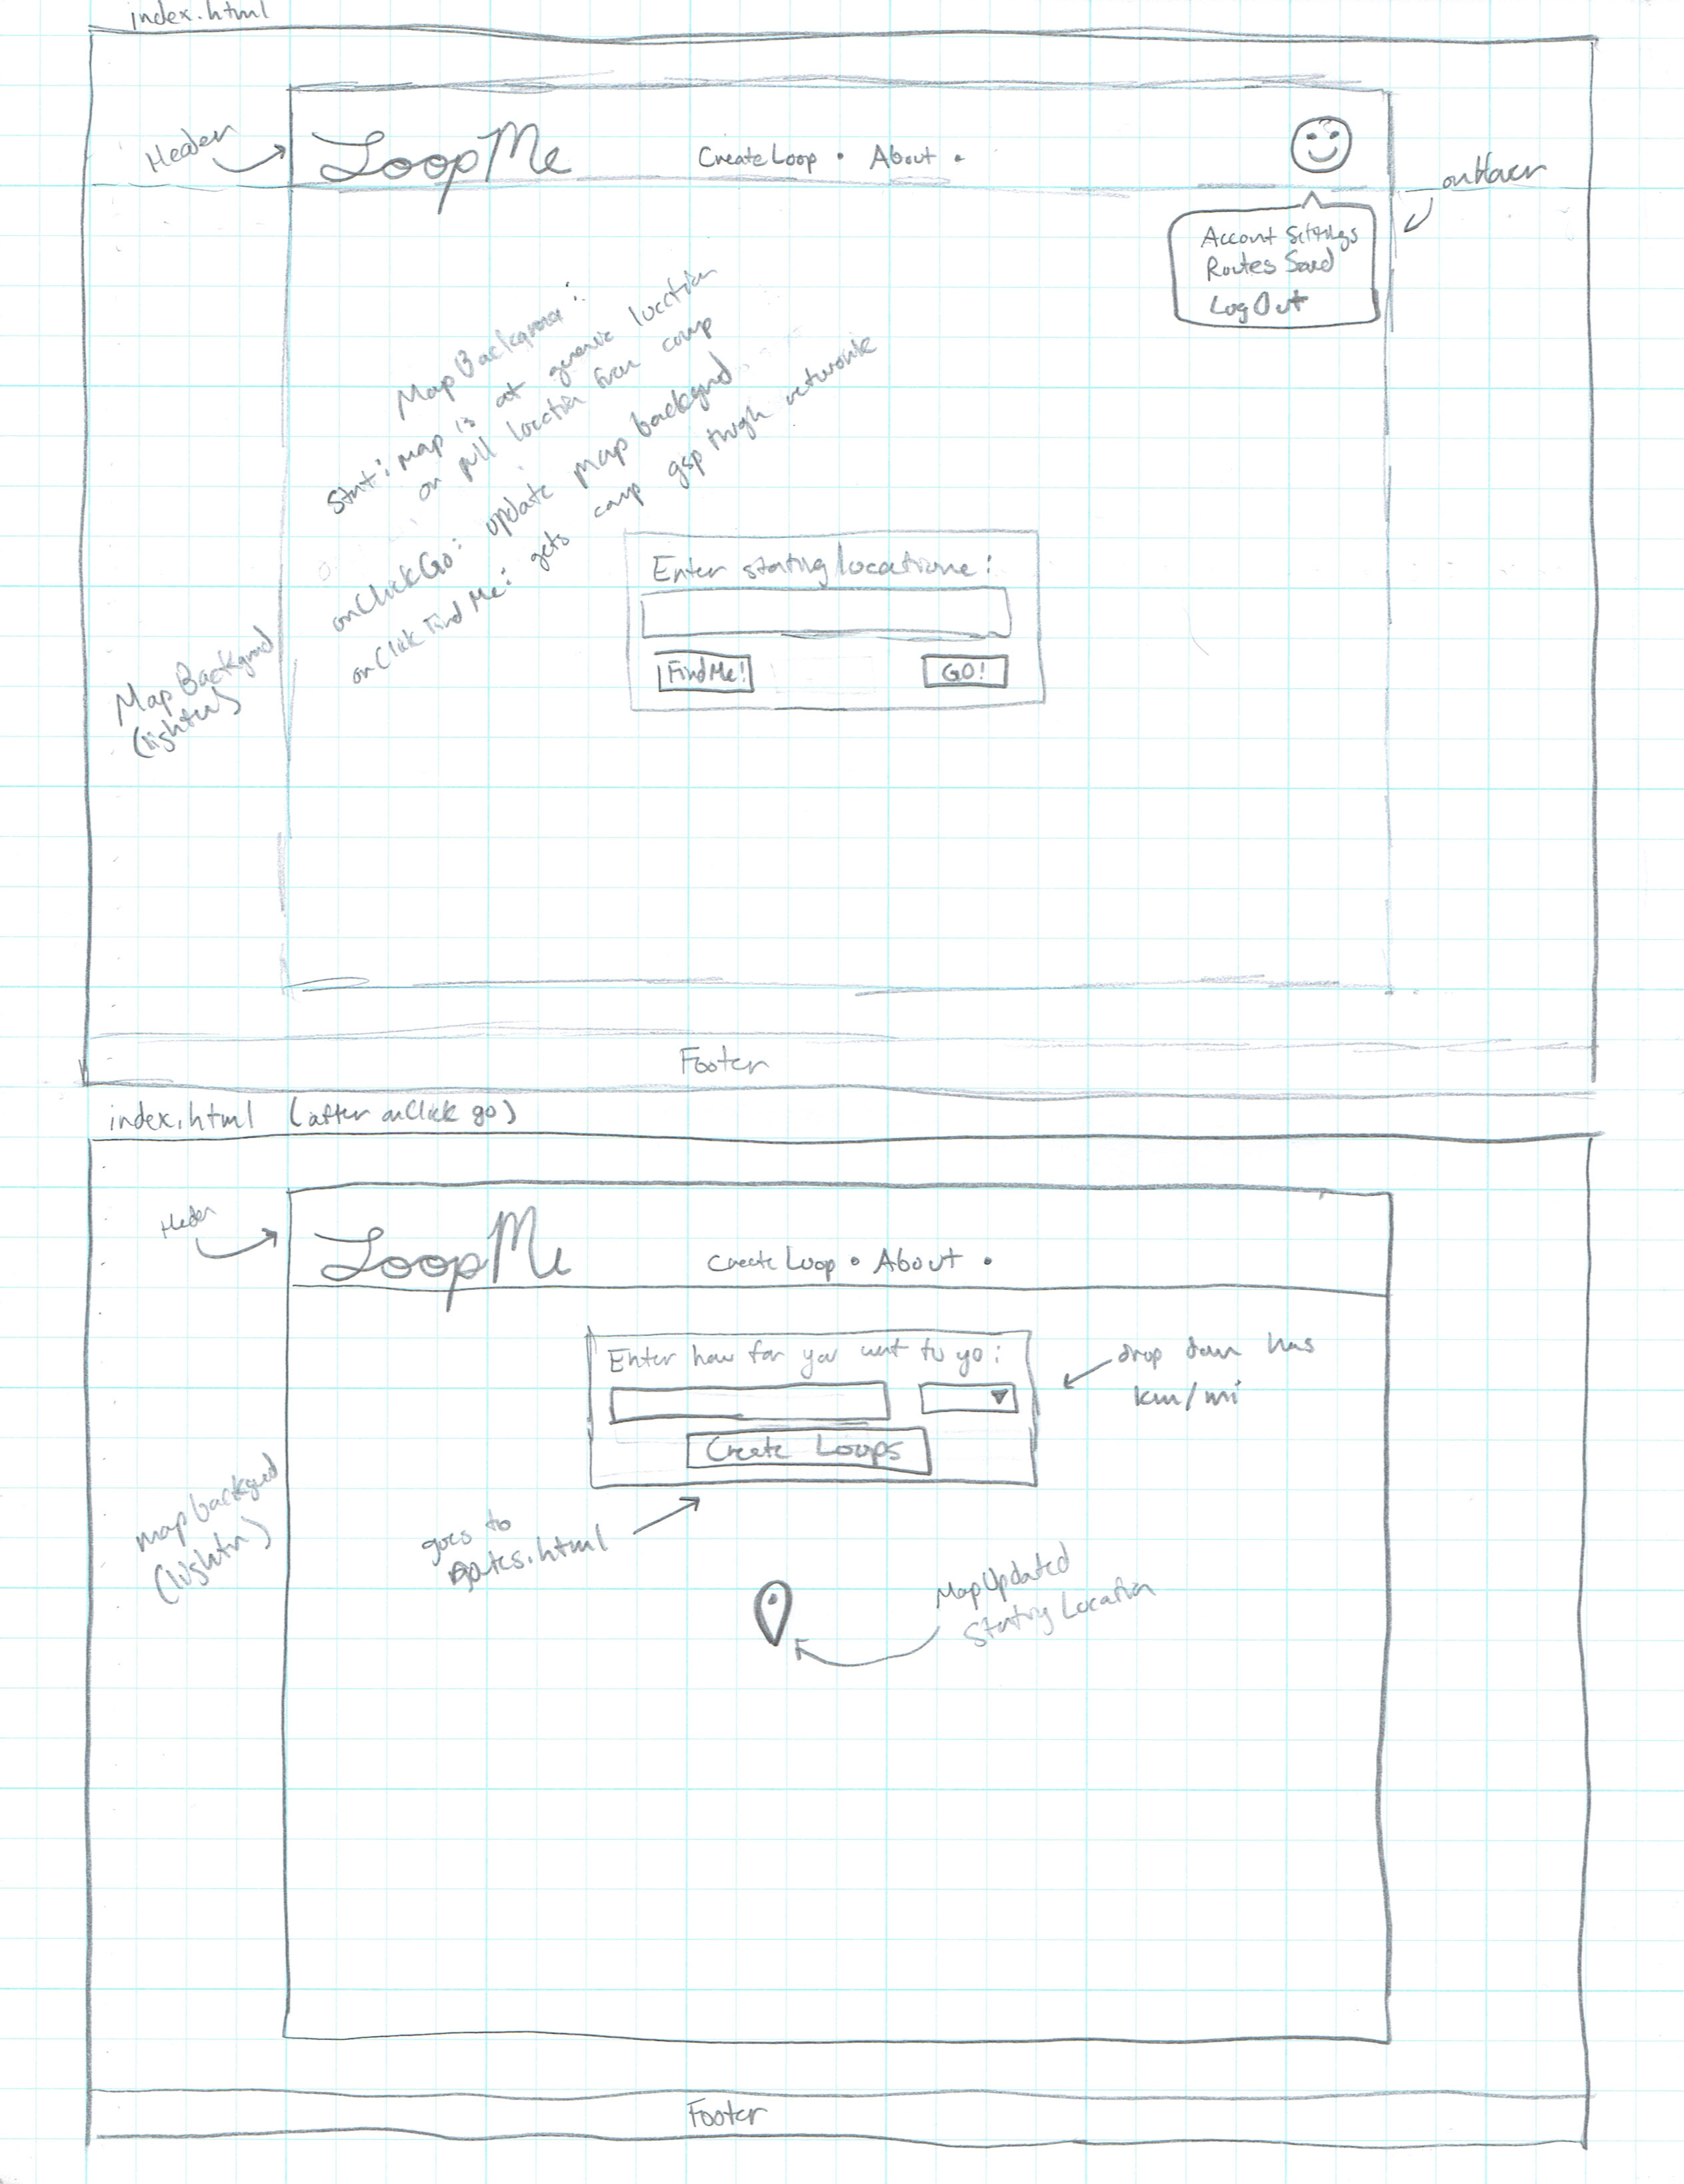 index.html
Header
LoopMe
Create Loop • About •
onHover
Account Settings
Routes Saved
Log Out
Map Background:
Start: map is at generic location
or pull location from comp
onClick Go: update map backgrnd
onClick Find Me: gets comp gsp through network
Enter starting locatione:
Find Me!
GO!
Map Backgrnd
(lighter)
Footer
index.html (after onClick go)
Header
LoopMe
Create Loop • About •
Enter how far you want to go:
drop down has
km/mi
Create Loops
goes to
Routes.html
map backgrnd
(lighter)
Map Updated
Starting Location
Footer